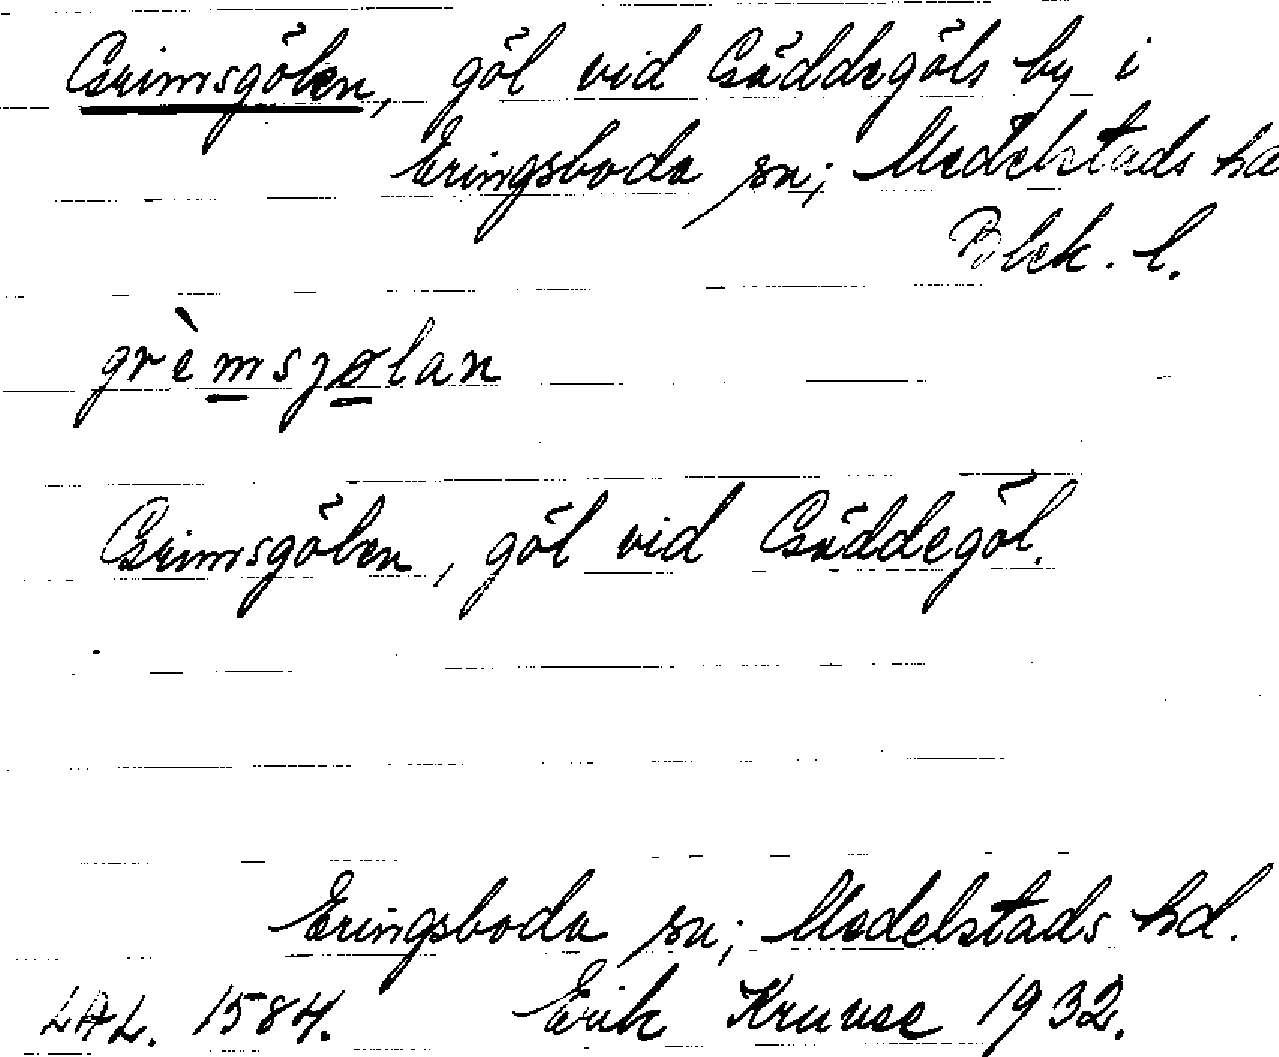 Grimsgölen, göl vid Gäddegöls by i
Eringsboda sn; Medelstads hd
Blek. l.
grèmsjølan
Grimsgölen, göl vid Gäddegöl.
Eringsboda sn; Medelstads hd.
LAL. 1584. Erik Kruuse 1932.